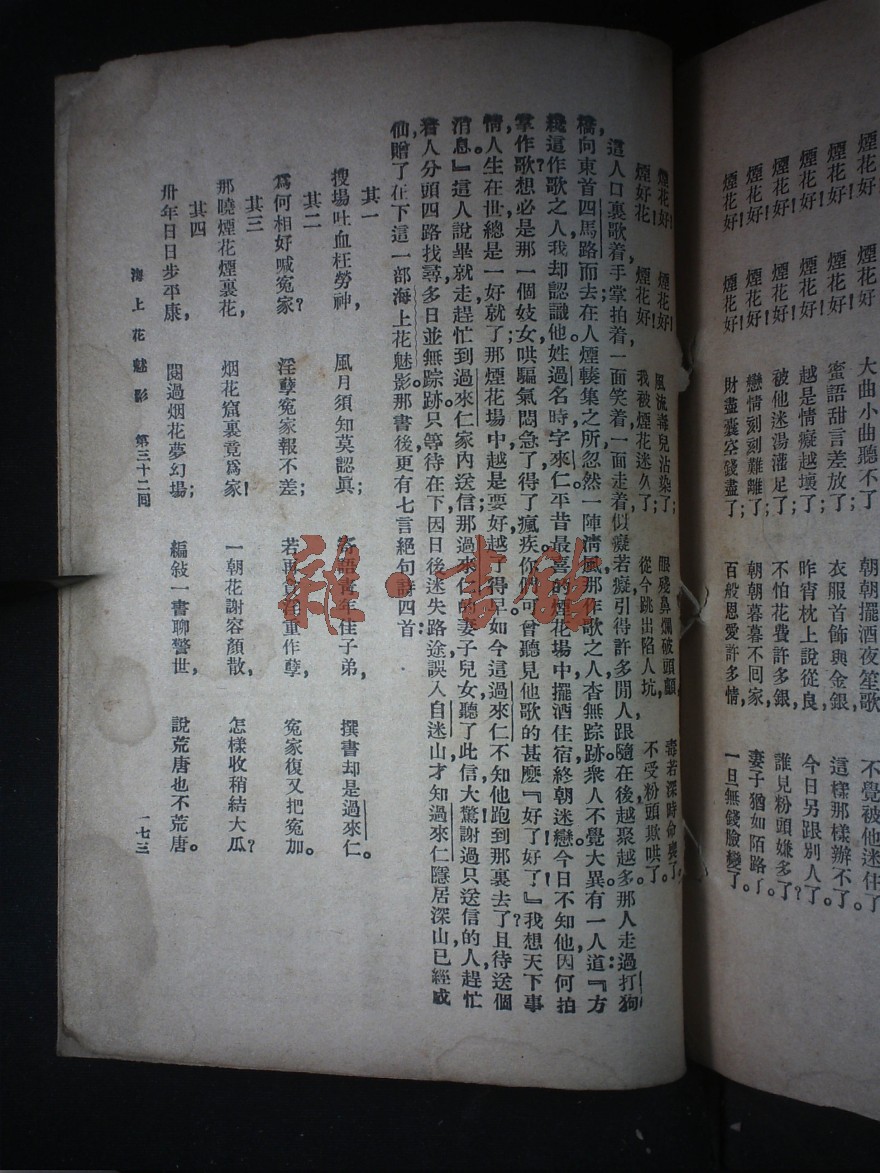 煙花好！　煙花好！　大曲小曲聽不了；　朝朝擺酒夜笙歌，　不覺被他迷住了。
煙花好！　煙花好！　蜜語甜言差放了；　衣服首飾與金銀，　這樣那樣辦不了。
煙花好！　煙花好！　越是情癡越壞了；　昨宵枕上說從良，　今日另跟別人了。
煙花好！　煙花好！　被他迷湯灌足了；　不怕花費許多銀，　誰見粉頭嫌多了？
煙花好！　煙花好！　戀情刻刻難離了；　朝朝暮暮不回家，　妻子猶如陌路了。
煙花好！　煙花好！　財盡囊空錢盡了；　百般恩愛許多情，　一旦無錢臉變了。
煙花好！　煙花好！　風流毒兒沾染了；　眼殘鼻爛破頭顱，　毒若深時命喪了。
煙好花！　煙花好！　我被煙花迷久了；　從今跳出陷人坑，　不受粉頭欺哄了。
這人口裏歌着，手掌拍着，一面笑着，一面走着，似癡若癡，引得許多閒人跟隨在後，越聚越多。那人走過打狗
橋，向東首四馬路而去。在人煙輳集之所，忽然一陣清風，那作歌之人，杳無踪跡。衆人不覺大異。有一人道：『方
纔這作歌之人，我却認識他，姓過名時，字來仁。平昔最喜的煙花場中，擺酒住宿，終朝迷戀，今日不知他因何拍
掌作歌？想必是那一個妓女哄騙，氣悶急了，得了瘋疾。你們可曾聽見他歌的甚麽『好了好了！』我想天下事
情，人生在世，總是一好就了；那煙花場中，越是要好，越了得早。如今這過來仁不知他跑到那裏去了？且待送個
消息。』這人說畢就走，趕忙到過來仁家內送信。那過來仁的妻子兒女，聽了此信大驚，謝過只送信的人，趕忙
着人分頭四路找尋，多日並無踪跡，只等待在下因日後迷失路途，誤入自迷山，才知過來仁隱居深山，已經成
仙，贈了在下這一部海上花魅影。那書後更有七言絕句詩四首：
其一
搜場吐血枉勞神，　風月須知莫認真；　寄語青年佳子弟，　撰書却是過來仁。
其二
爲何相好喊冤家？　淫孽冤家報不差；　若再貪淫重作孽，　冤家復又把冤加。
其三
那曉煙花煙裏花，　烟花窟裏竟爲家！　一朝花謝容顏散，　怎樣收稍結大瓜？
其四
卅年日日步平康，　閱過烟花夢幻場；　編敍一書聊警世，　說荒唐也不荒唐。
海上花魅影　第三十二回　一七三
雜·書館